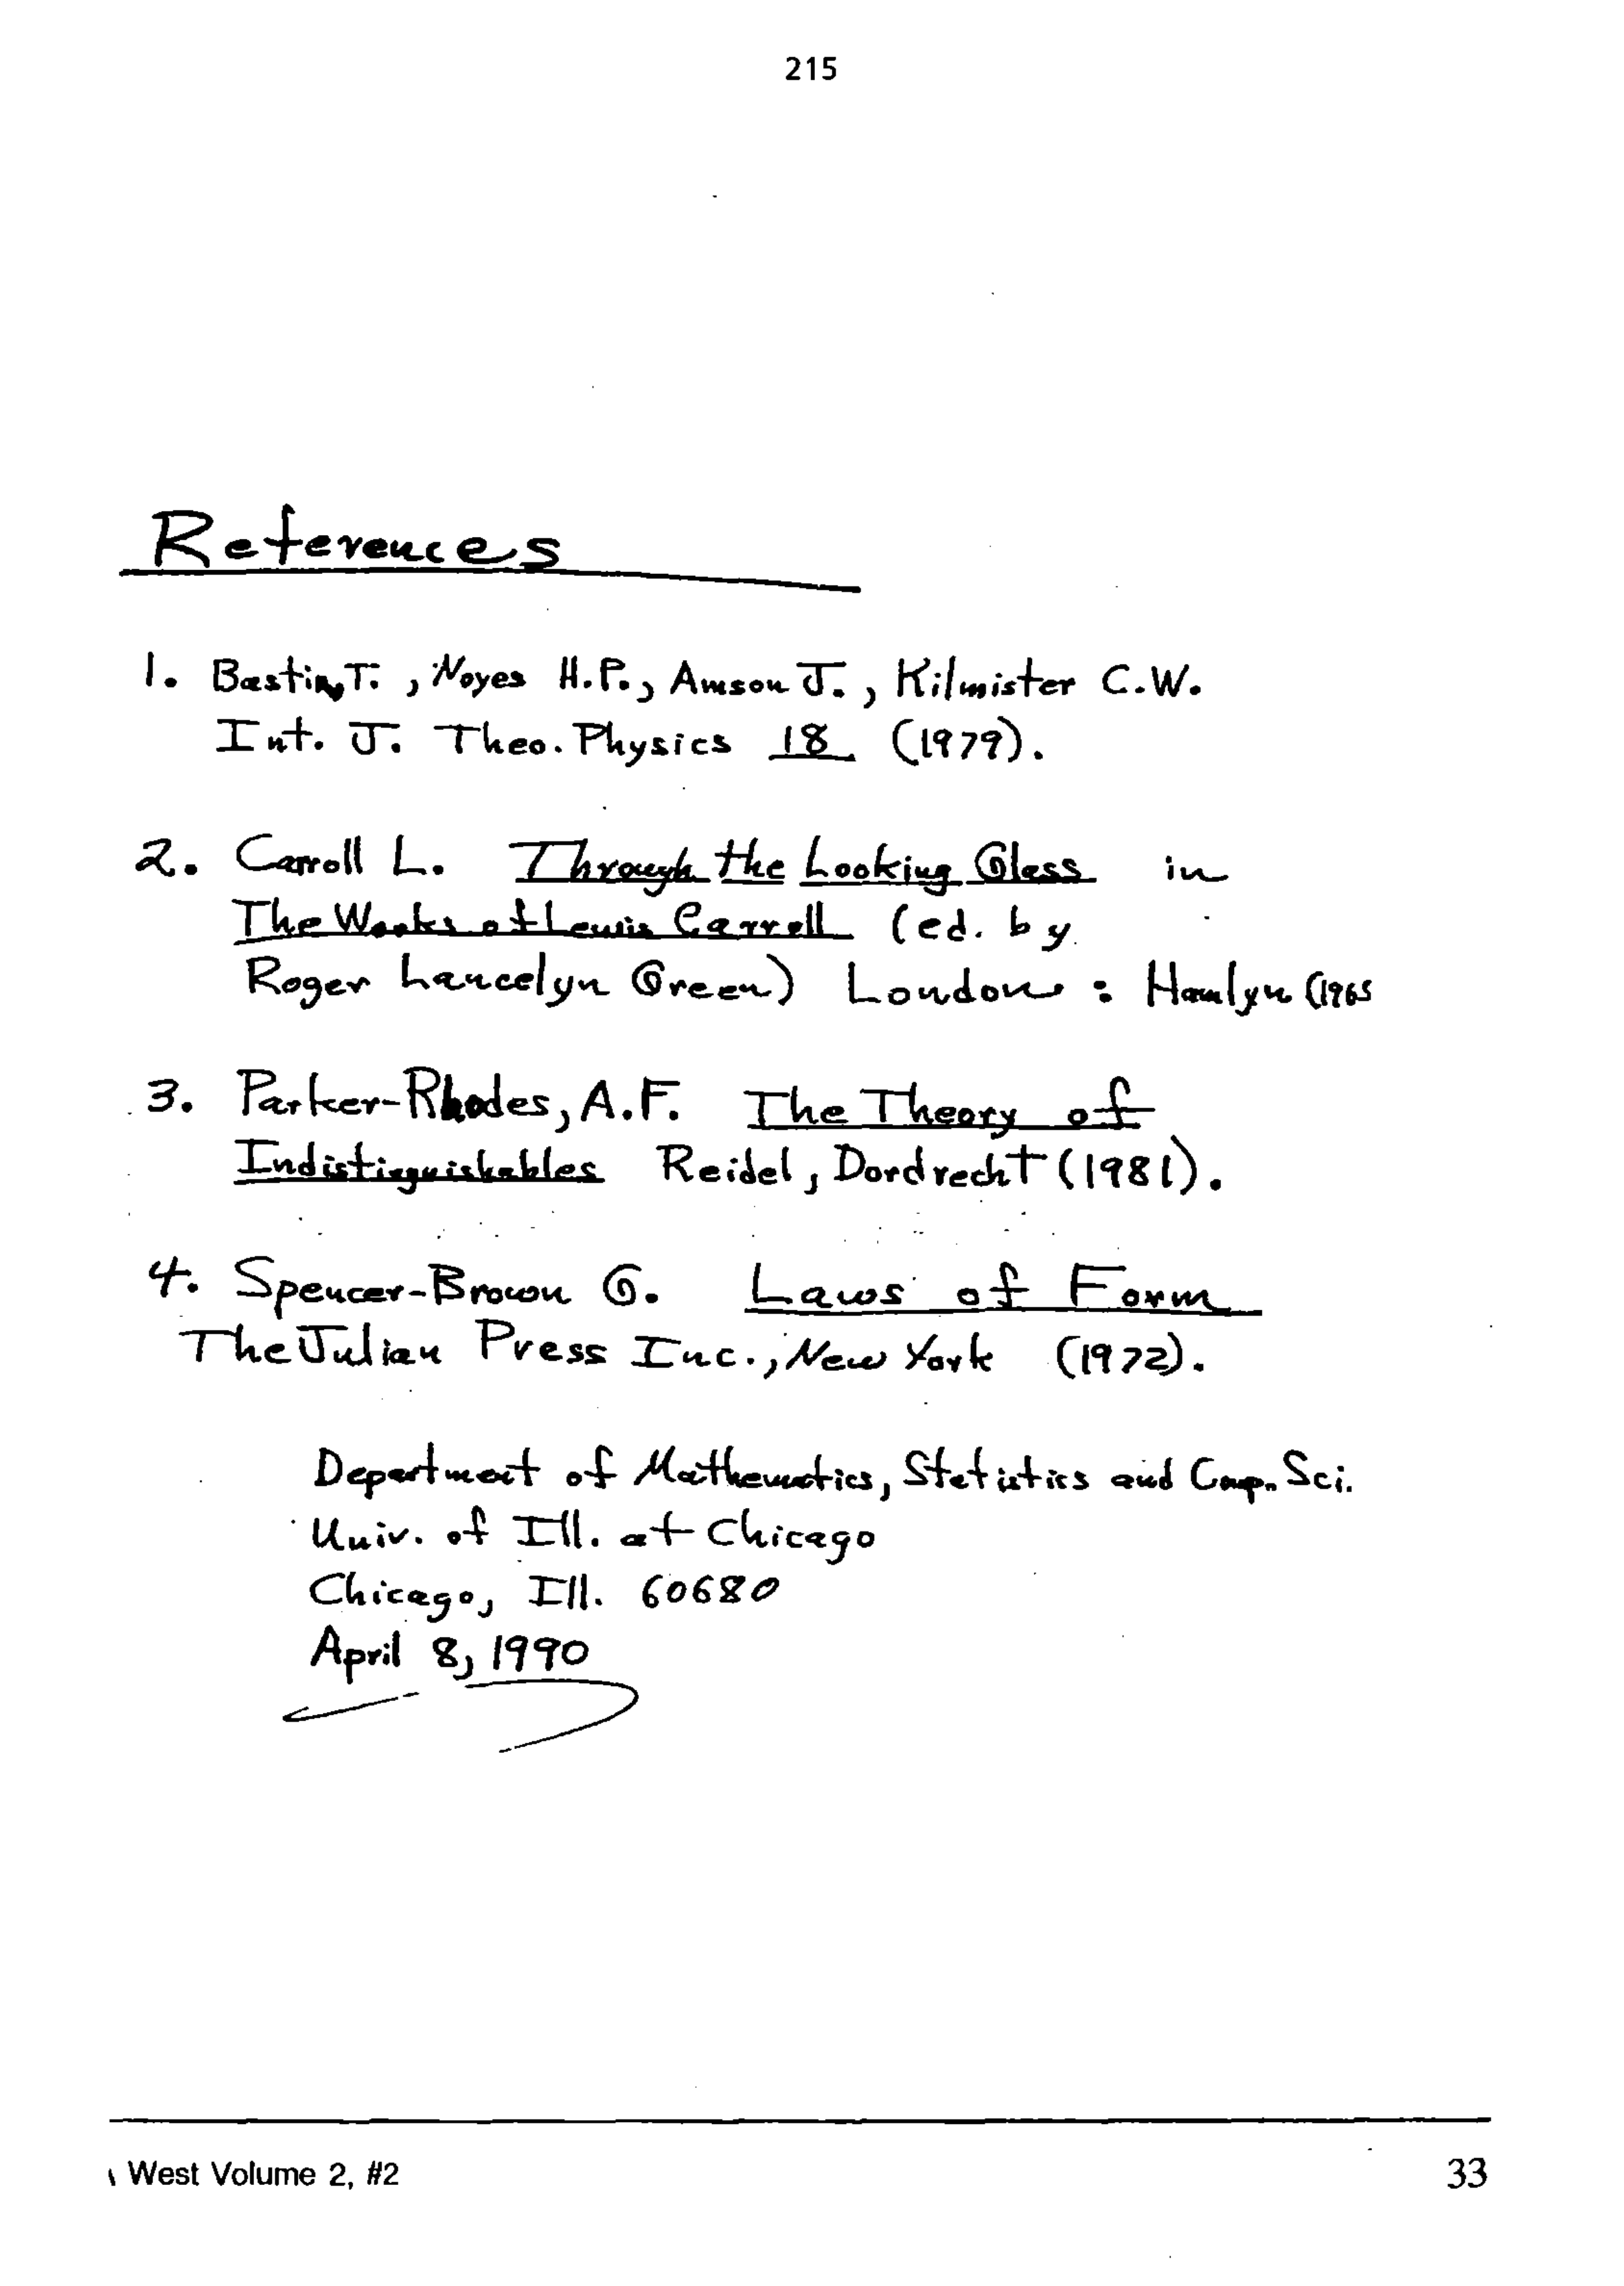 215
References
1. Bastin, T. , Noyes H.P., Amson J. , Kilmister C.W.
Int. J. Theo. Physics 18 (1979).
2. Carroll L. Through the Looking Glass in
The Works of Lewis Carroll (ed. by
Roger Lancelyn Green) London : Hamlyn (1965
3. Parker-Rhodes, A.F. The Theory of
Indistinguishables Reidel, Dordrecht (1981).
4. Spencer-Brown G. Laws of Form
The Julian Press Inc., New York (1972).
Department of Mathematics, Statistics and Comp. Sci.
Univ. of Ill. at Chicago
Chicago, Ill. 60680
April 8, 1990
West Volume 2, #2
33